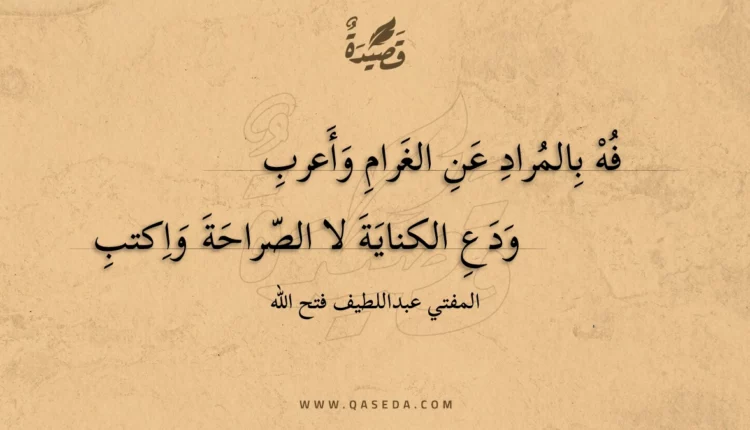 قَصِيْدَةٌ
فُهْ بِالمُرادِ عَنِ الغَرامِ وَأَعرِبِ
وَدَعِ الكنايَةَ لا الصّراحَةَ وَاِكتبِ
المفتي عبداللطيف فتح الله
WWW.QASEDA.COM